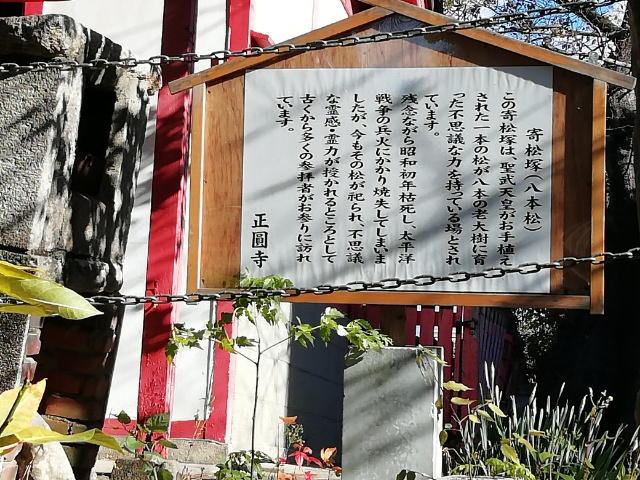 寄松塚(八本松)
この寄松塚は、聖武天皇がお手植え
された一本の松が八本の老大樹に育
った不思議な力を持っている場とされ
ています。
残念ながら昭和初年枯死し、太平洋
戦争の兵火にかかり焼失してしまいま
したが、今もその松が祀られ、不思議
な霊感・霊力が授かれるところとして
古くから多くの参拝者がお参りに訪れ
ています。
正圓寺